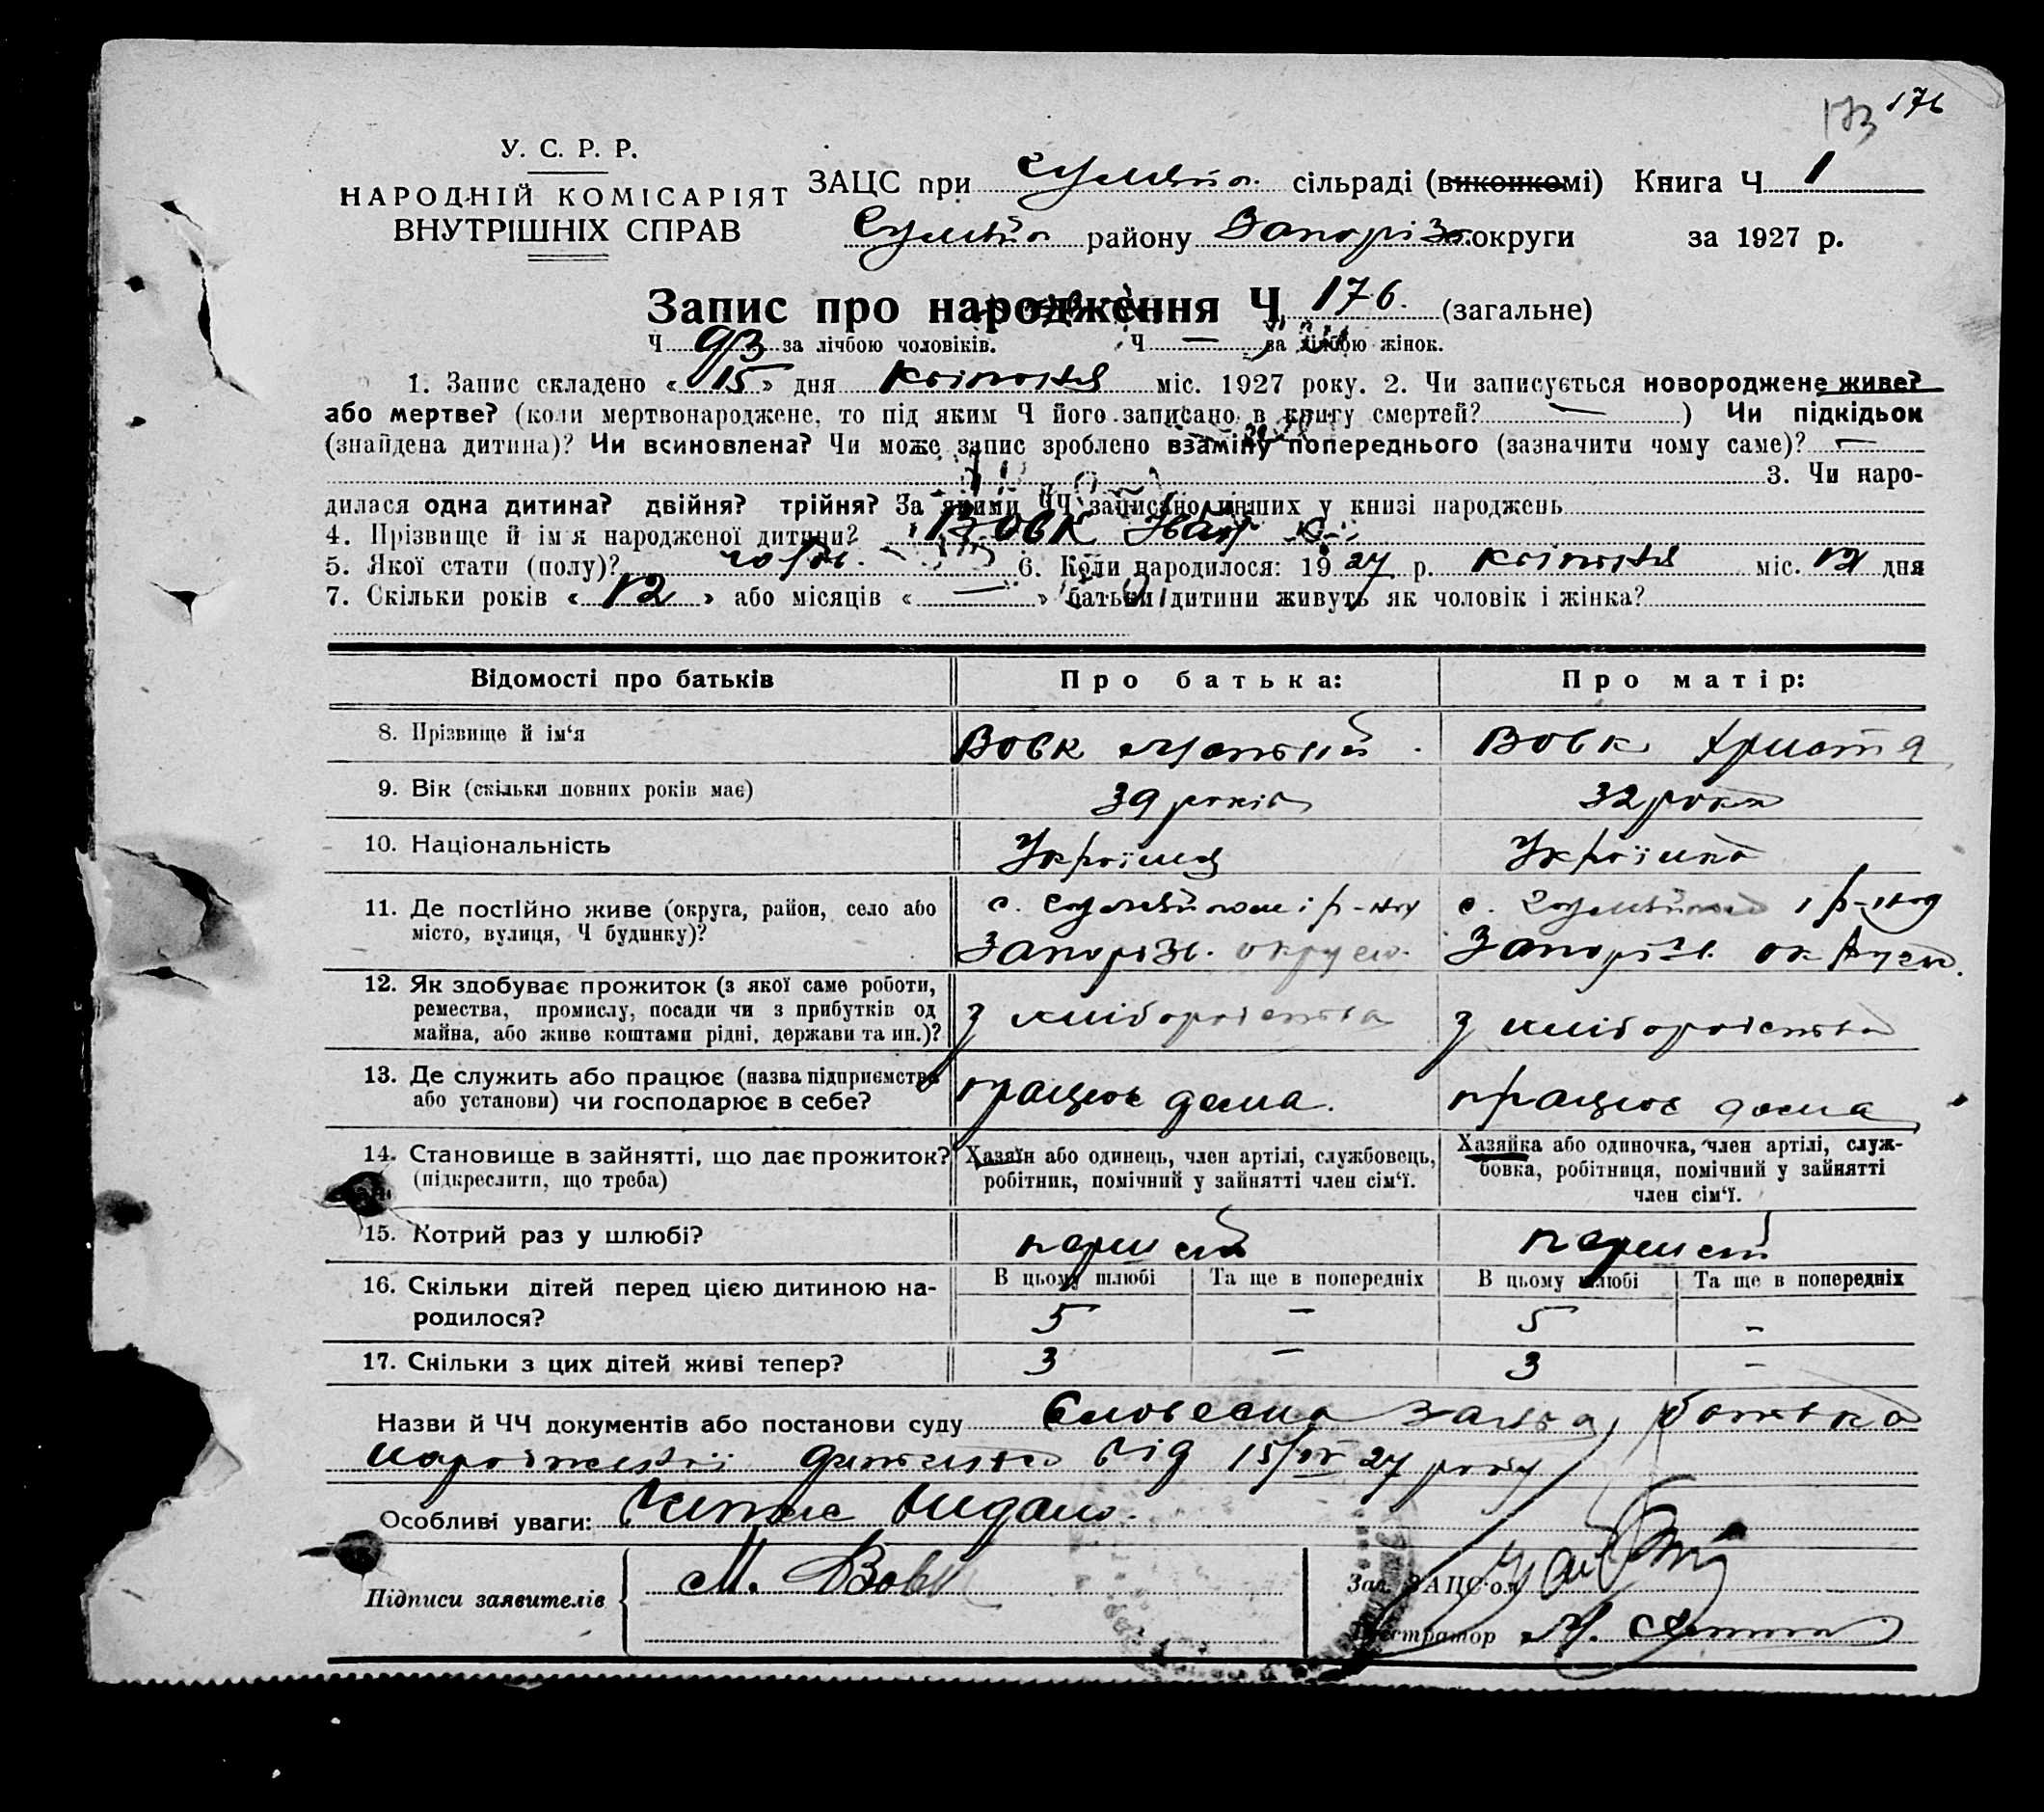 173 176
У. С. Р. Р.
НАРОДНІЙ КОМІСАРІЯТ
ВНУТРІШНІХ СПРАВ
ЗАЦС при сільраді (виконкомі) Книга Ч 1
району Запоріз. округи за 1927 р.
Запис про народження Ч 176. (загальне)
Ч 93 за лічбою чоловіків. Ч — за лічбою жінок.
1. Запис складено « 15 » дня квітня міс. 1927 року. 2. Чи записується новороджене живе?
або мертве? (коли мертвонароджене, то під яким Ч його записано в книгу смертей? — ) Чи підкідьок
(знайдена дитина)? Чи всиновлена? Чи може запис зроблено взаміну попереднього (зазначити чому саме)? —
3. Чи наро-
дилася одна дитина? двійня? трійня? За якими ЧЧ записано инших у книзі народжень
4. Прізвище й ім'я народженої дитини? Вовк Іван
5. Якої стати (полу)? чолов. 6. Коли народилося: 19 27 р. квітня міс. 12 дня
7. Скільки років « 12 » або місяців « — » батьки дитини живуть як чоловік і жінка?
Відомості про батьків Про батька: Про матір:
8. Прізвище й ім'я Вовк Матвій Вовк Христя
9. Вік (скільки повних років має) 39 років 32 роки
10. Національність Українец Українка
11. Де постійно живе (округа, район, село або місто, вулиця, Ч будинку)? с. і р-ну с. і р-ну
Запорізь. округи. Запорізь. округи.
12. Як здобуває прожиток (з якої саме роботи,
ремества, промислу, посади чи з прибутків од
майна, або живе коштами рідні, держави та ин.)? з хліборобства з хліборобства
13. Де служить або працює (назва підприємства
або установи) чи господарює в себе? працює дома. працює дома
14. Становище в зайнятті, що дає прожиток?
(підкреслити, що треба)
Хазяїн або одинець, член артілі, службовець,
робітник, помічний у зайнятті член сім'ї.
Хазяйка або одиночка, член артілі, служ-
бовка, робітниця, помічний у зайнятті
член сім'ї.
15. Котрий раз у шлюбі? перший перший
В цьому шлюбі Та ще в попередніх В цьому шлюбі Та ще в попередніх
16. Скільки дітей перед цією дитиною на-
родилося? 5 – 5 –
17. Скільки з цих дітей живі тепер? 3 – 3 –
Назви й ЧЧ документів або постанови суду Словесна заява батька
від 15/IV 27 року
Особливі уваги: Витяг видано.
Підписи заявителів М. Вовк
Зав. ЗАЦС'ом
Реєстратор